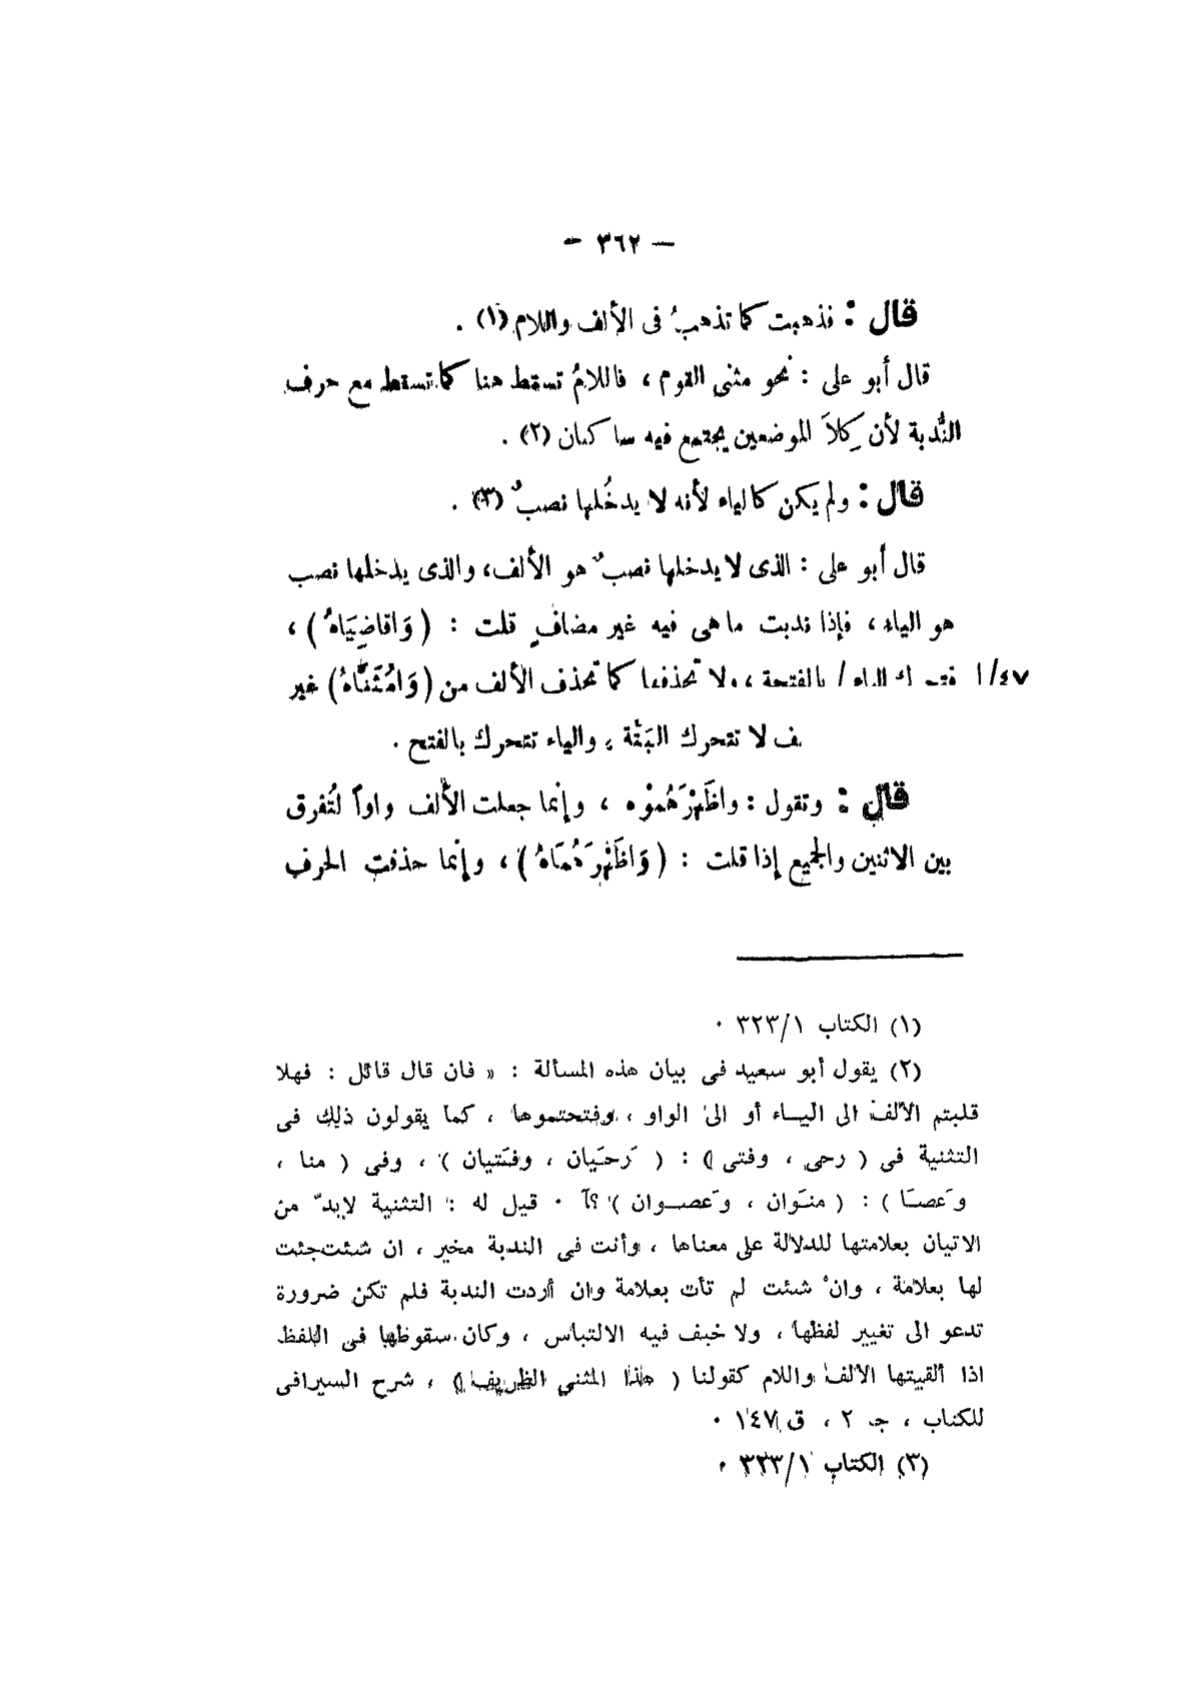 — ٣٦٢ —
قال : فذهبت كما تذهبُ فى الألف واللام (١) .
قال أبو على : نحو مثنى القوم ، فاللامُ تسقط هنا كما تسقط مع حرف
النُّدبة لأن كِلاَ الموضعين يجتمع فيه ساكنان (٢) .
قال : ولم يكن كالياء لأنه لا يدخُلها نصبٌ (٣) .
قال أبو على : الذى لا يدخلها نصبٌ هو الألف، والذى يدخلها نصب
هو الياء ، فإذا ندبت ما هى فيه غير مضافٍ قلت : ( وَاقاضِيَاهُ ) ،
٤٧/ا الياء / بالفتحة ، ولا تحذفها كما تحذف الألف من ( وَامُثَنَّاهُ ) غير
ـف لا تتحرك البَتَّة ، والياء تتحرك بالفتح .
قال : وتقول : واظَهْرَهُمُوْه ، وإنما جعلت الألف واواً لتُفرق
بين الاثنين والجميع إذا قلت : ( وَاظَهْرَهُمَاهُ ) ، وإنما حذفت الحرف
(١) الكتاب ٣٢٣/١ ٠
(٢) يقول أبو سعيد فى بيان هذه المسألة : « فان قال قائل : فهلا
قلبتم الألف الى اليـاء أو الى الواو ، وفتحتموها ، كما يقولون ذلك فى
التثنية فى ( رحى ، وفتى ) : ( رَحَيان ، وفتَيان ) ، وفى ( منا ،
وعَصَا ) : ( منَوان ، وعَصـوان ) ؟ ٠ قيل له : التثنية لابدّ من
الاتيان بعلامتها للدلالة على معناها ، وأنت فى الندبة مخير ، ان شئت جئت
لها بعلامة ، وان شئت لم تأت بعلامة وان أردت الندبة فلم تكن ضرورة
تدعو الى تغيير لفظها ، ولا خيف فيه الالتباس ، وكان سقوطها فى اللفظ
اذا ألقيتها الألف واللام كقولنا ( هذا المثنى الظريف ) ، شرح السيرافى
للكتاب ، جـ ٢ ، ق ١٤٧ ٠
(٣) الكتاب ٣٢٣/١ ٠